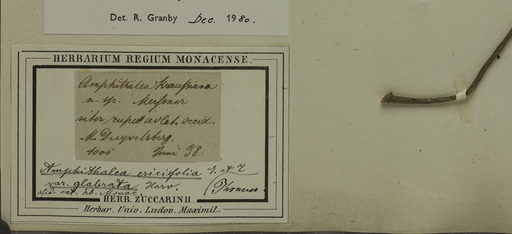 Det. R. Granby Dec. 1980.
HERBARIUM REGIUM MONACENSE.
Amphithalea Kraussiana
n. sp. Meisner
inter rupes ad lat. occid.
M. Duyvelsberg.
1000' Juni 38.
Amphithalea ericifolia E. et Z
var. glabrata Harv.
(Krauss)
HERB. ZUCCARINII.
Herbar. Univ. Ludov. Maximil.